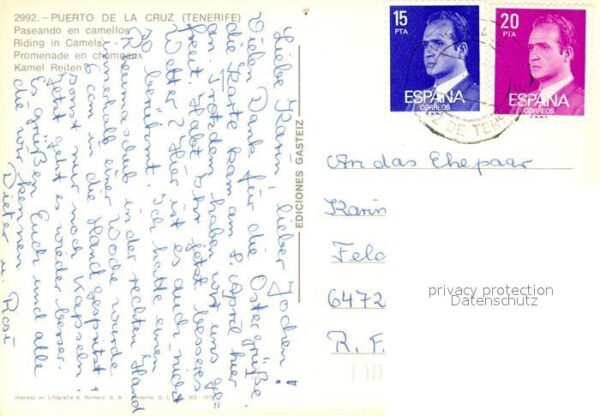 2992. - PUERTO DE LA CRUZ (TENERIFE)
Paseando en camellos
Riding in Camels
Promenade en chameaux
Kamel Reiten
Liebe Karin, lieber Jochen!
Vielen Dank für die Ostergrüße.
die Karte kam am 8. April hier
an. Trotzdem haben wir uns ge-
freut. Habt Ihr jetzt besseres
Wetter? Hier ist es auch nicht
so berühmt. Ich hatte einen
Rheumaschub in der rechten Hand
innerhalb einer Woche wurde
6 cm in die Hand gespritzt,
sonst nur noch Kapseln.
Jetzt geht es wieder besser.
Es grüßen Euch und alle
die wir kennen
Dieter u. Rosi
EDICIONES GASTEIZ
15
PTA
ESPAÑA
CORREOS
20
PTA
ESPAÑA
CORREOS
DE TENE
An das Ehepaar
Karin
Feld
6472
R. F.
privacy protection
Datenschutz
Impreso en Litografía A. Romero, S. A.